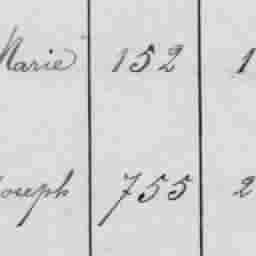 Marie 152 1
Joseph 755 2